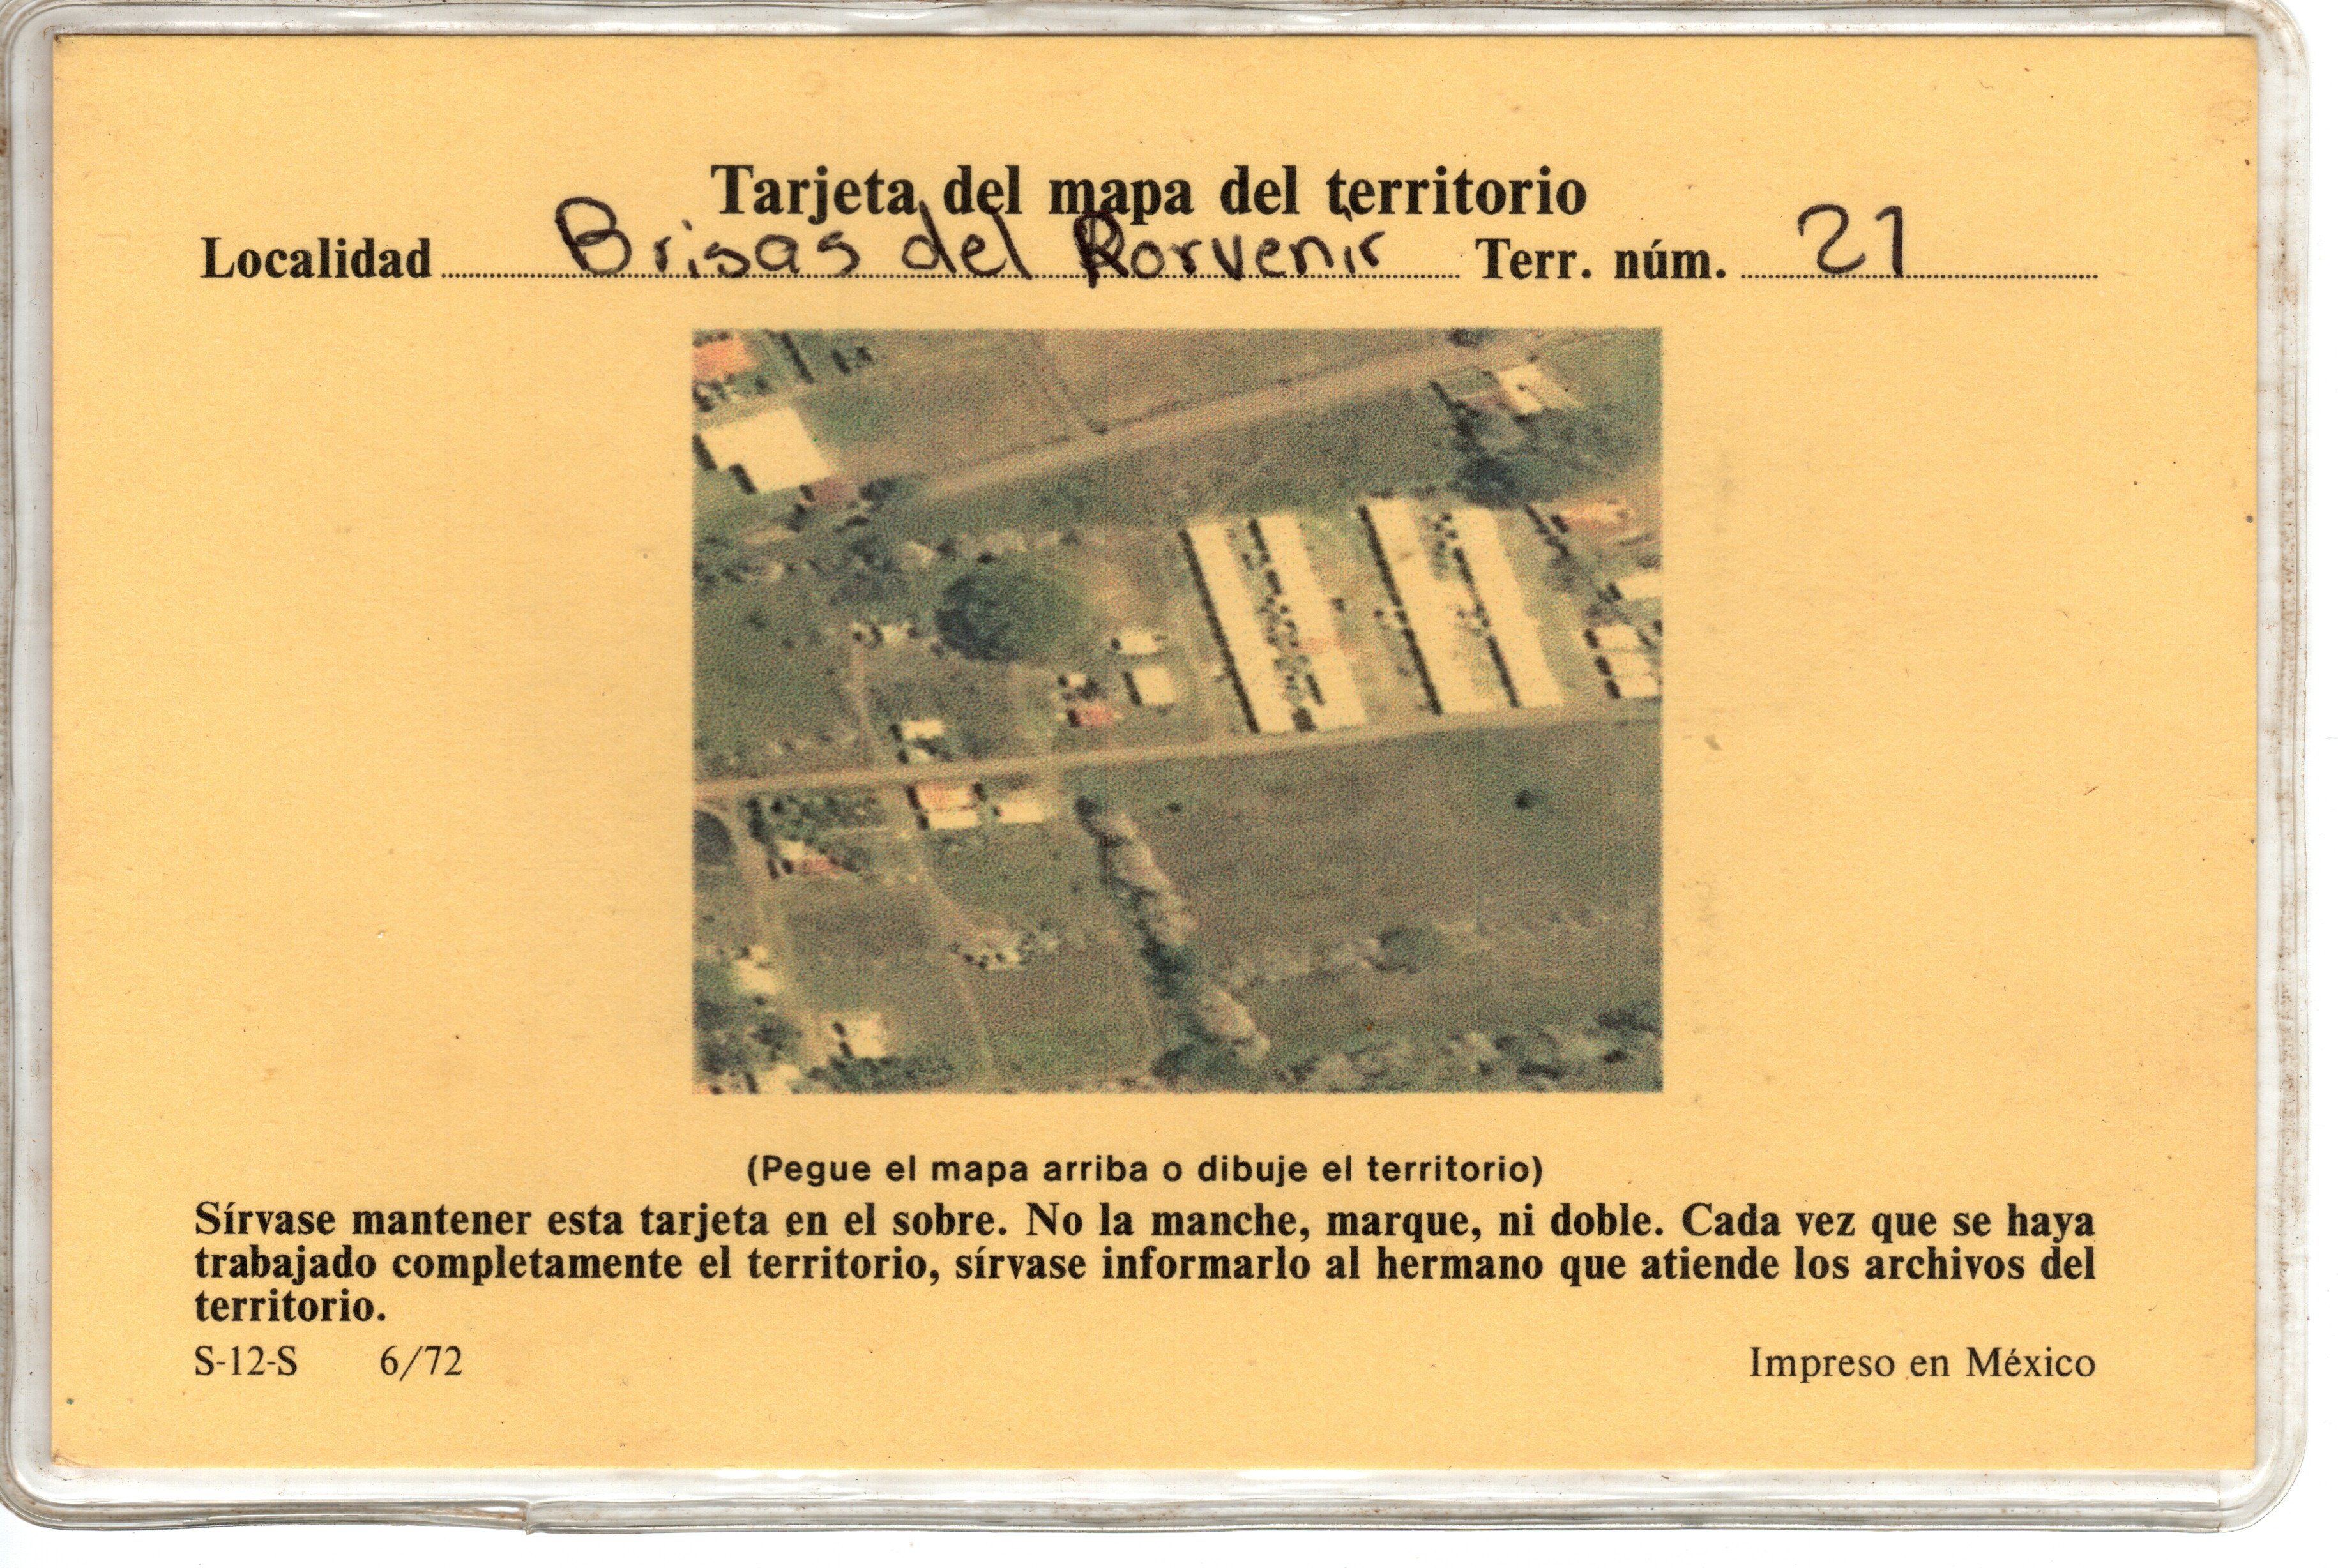 Tarjeta del mapa del territorio
Localidad Brisas del Porvenir Terr. núm. 21
(Pegue el mapa arriba o dibuje el territorio)
Sírvase mantener esta tarjeta en el sobre. No la manche, marque, ni doble. Cada vez que se haya
trabajado completamente el territorio, sírvase informarlo al hermano que atiende los archivos del
territorio.
S-12-S 6/72 Impreso en México